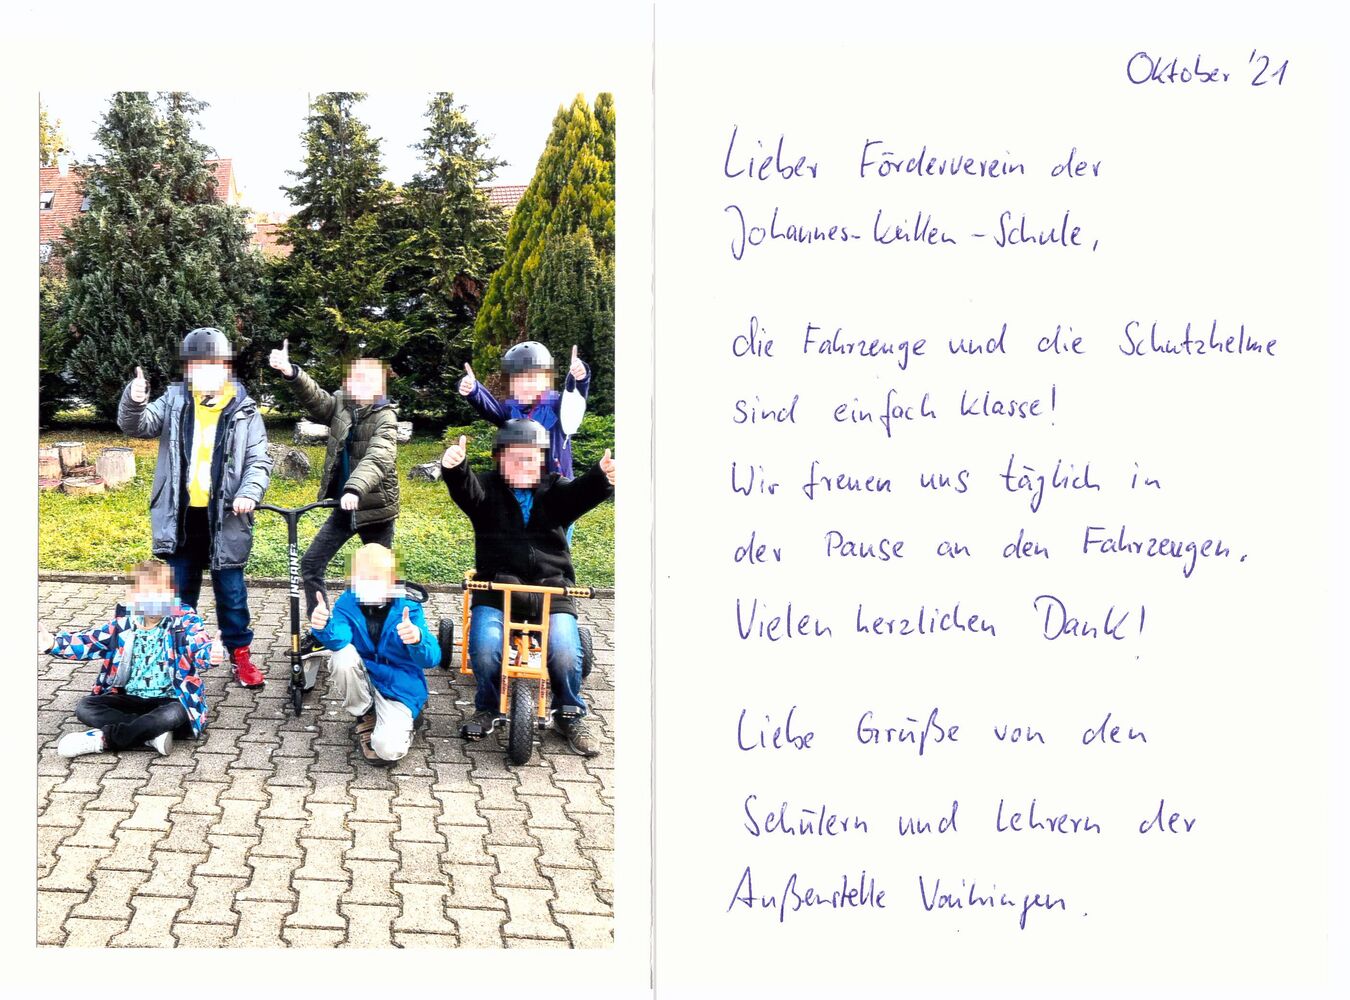 Oktober '21
Lieber Förderverein der
Johannes-Kullen-Schule,
die Fahrzeuge und die Schutzhelme
sind einfach klasse!
Wir freuen uns täglich in
der Pause an den Fahrzeugen.
Vielen herzlichen Dank!
Liebe Grüße von den
Schülern und Lehrern der
Außenstelle Vaihingen.
INSANE